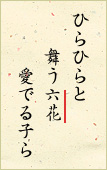 ひらひらと
舞う六花
愛でる子ら